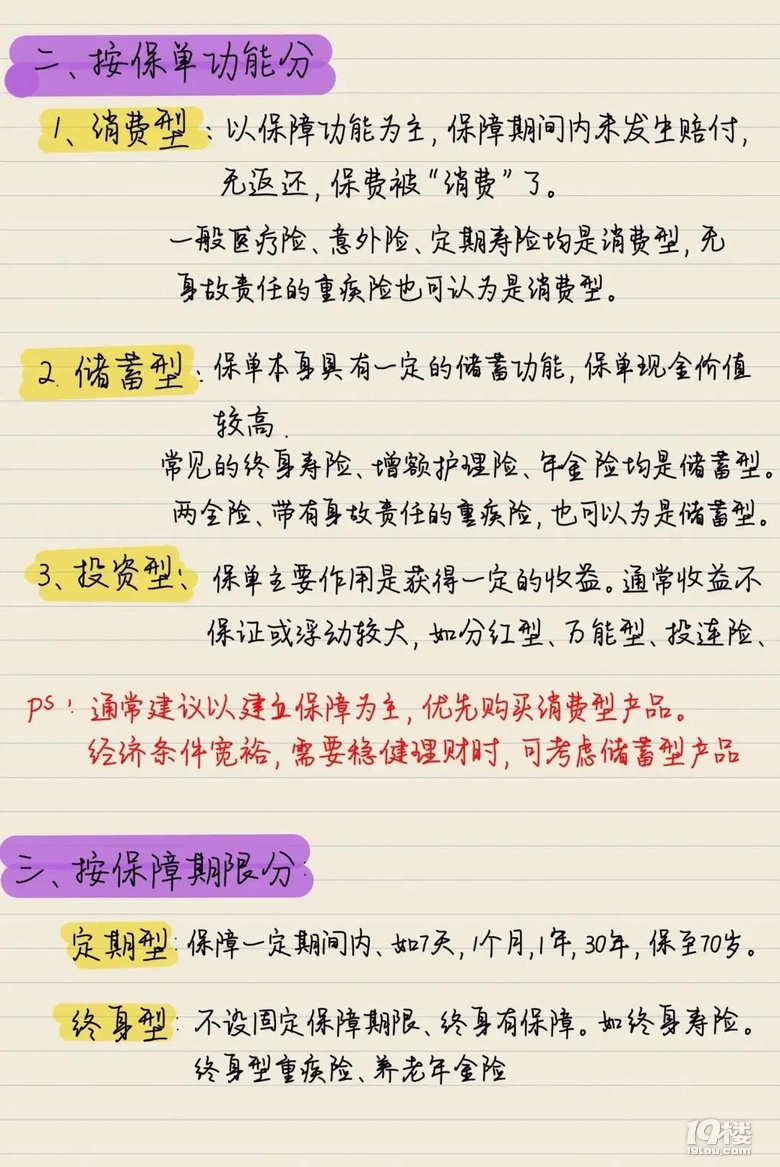 二、按保单功能分
1、消费型：以保障功能为主，保障期间内未发生赔付，
无返还，保费被“消费”了。
一般医疗险、意外险、定期寿险均是消费型，无
身故责任的重疾险也可认为是消费型。
2. 储蓄型：保单本身具有一定的储蓄功能，保单现金价值
较高.
常见的终身寿险、增额护理险、年金险均是储蓄型。
两全险、带有身故责任的重疾险，也可以为是储蓄型。
3、投资型：保单主要作用是获得一定的收益。通常收益不
保证或浮动较大，如分红型、万能型、投连险、
ps：通常建议以建立保障为主，优先购买消费型产品。
经济条件宽裕，需要稳健理财时，可考虑储蓄型产品
三、按保障期限分：
定期型：保障一定期间内、如7天，1个月，1年，30年，保至70岁。
终身型：不设固定保障期限、终身有保障。如终身寿险。
终身型重疾险、养老年金险
19楼
19lou.com